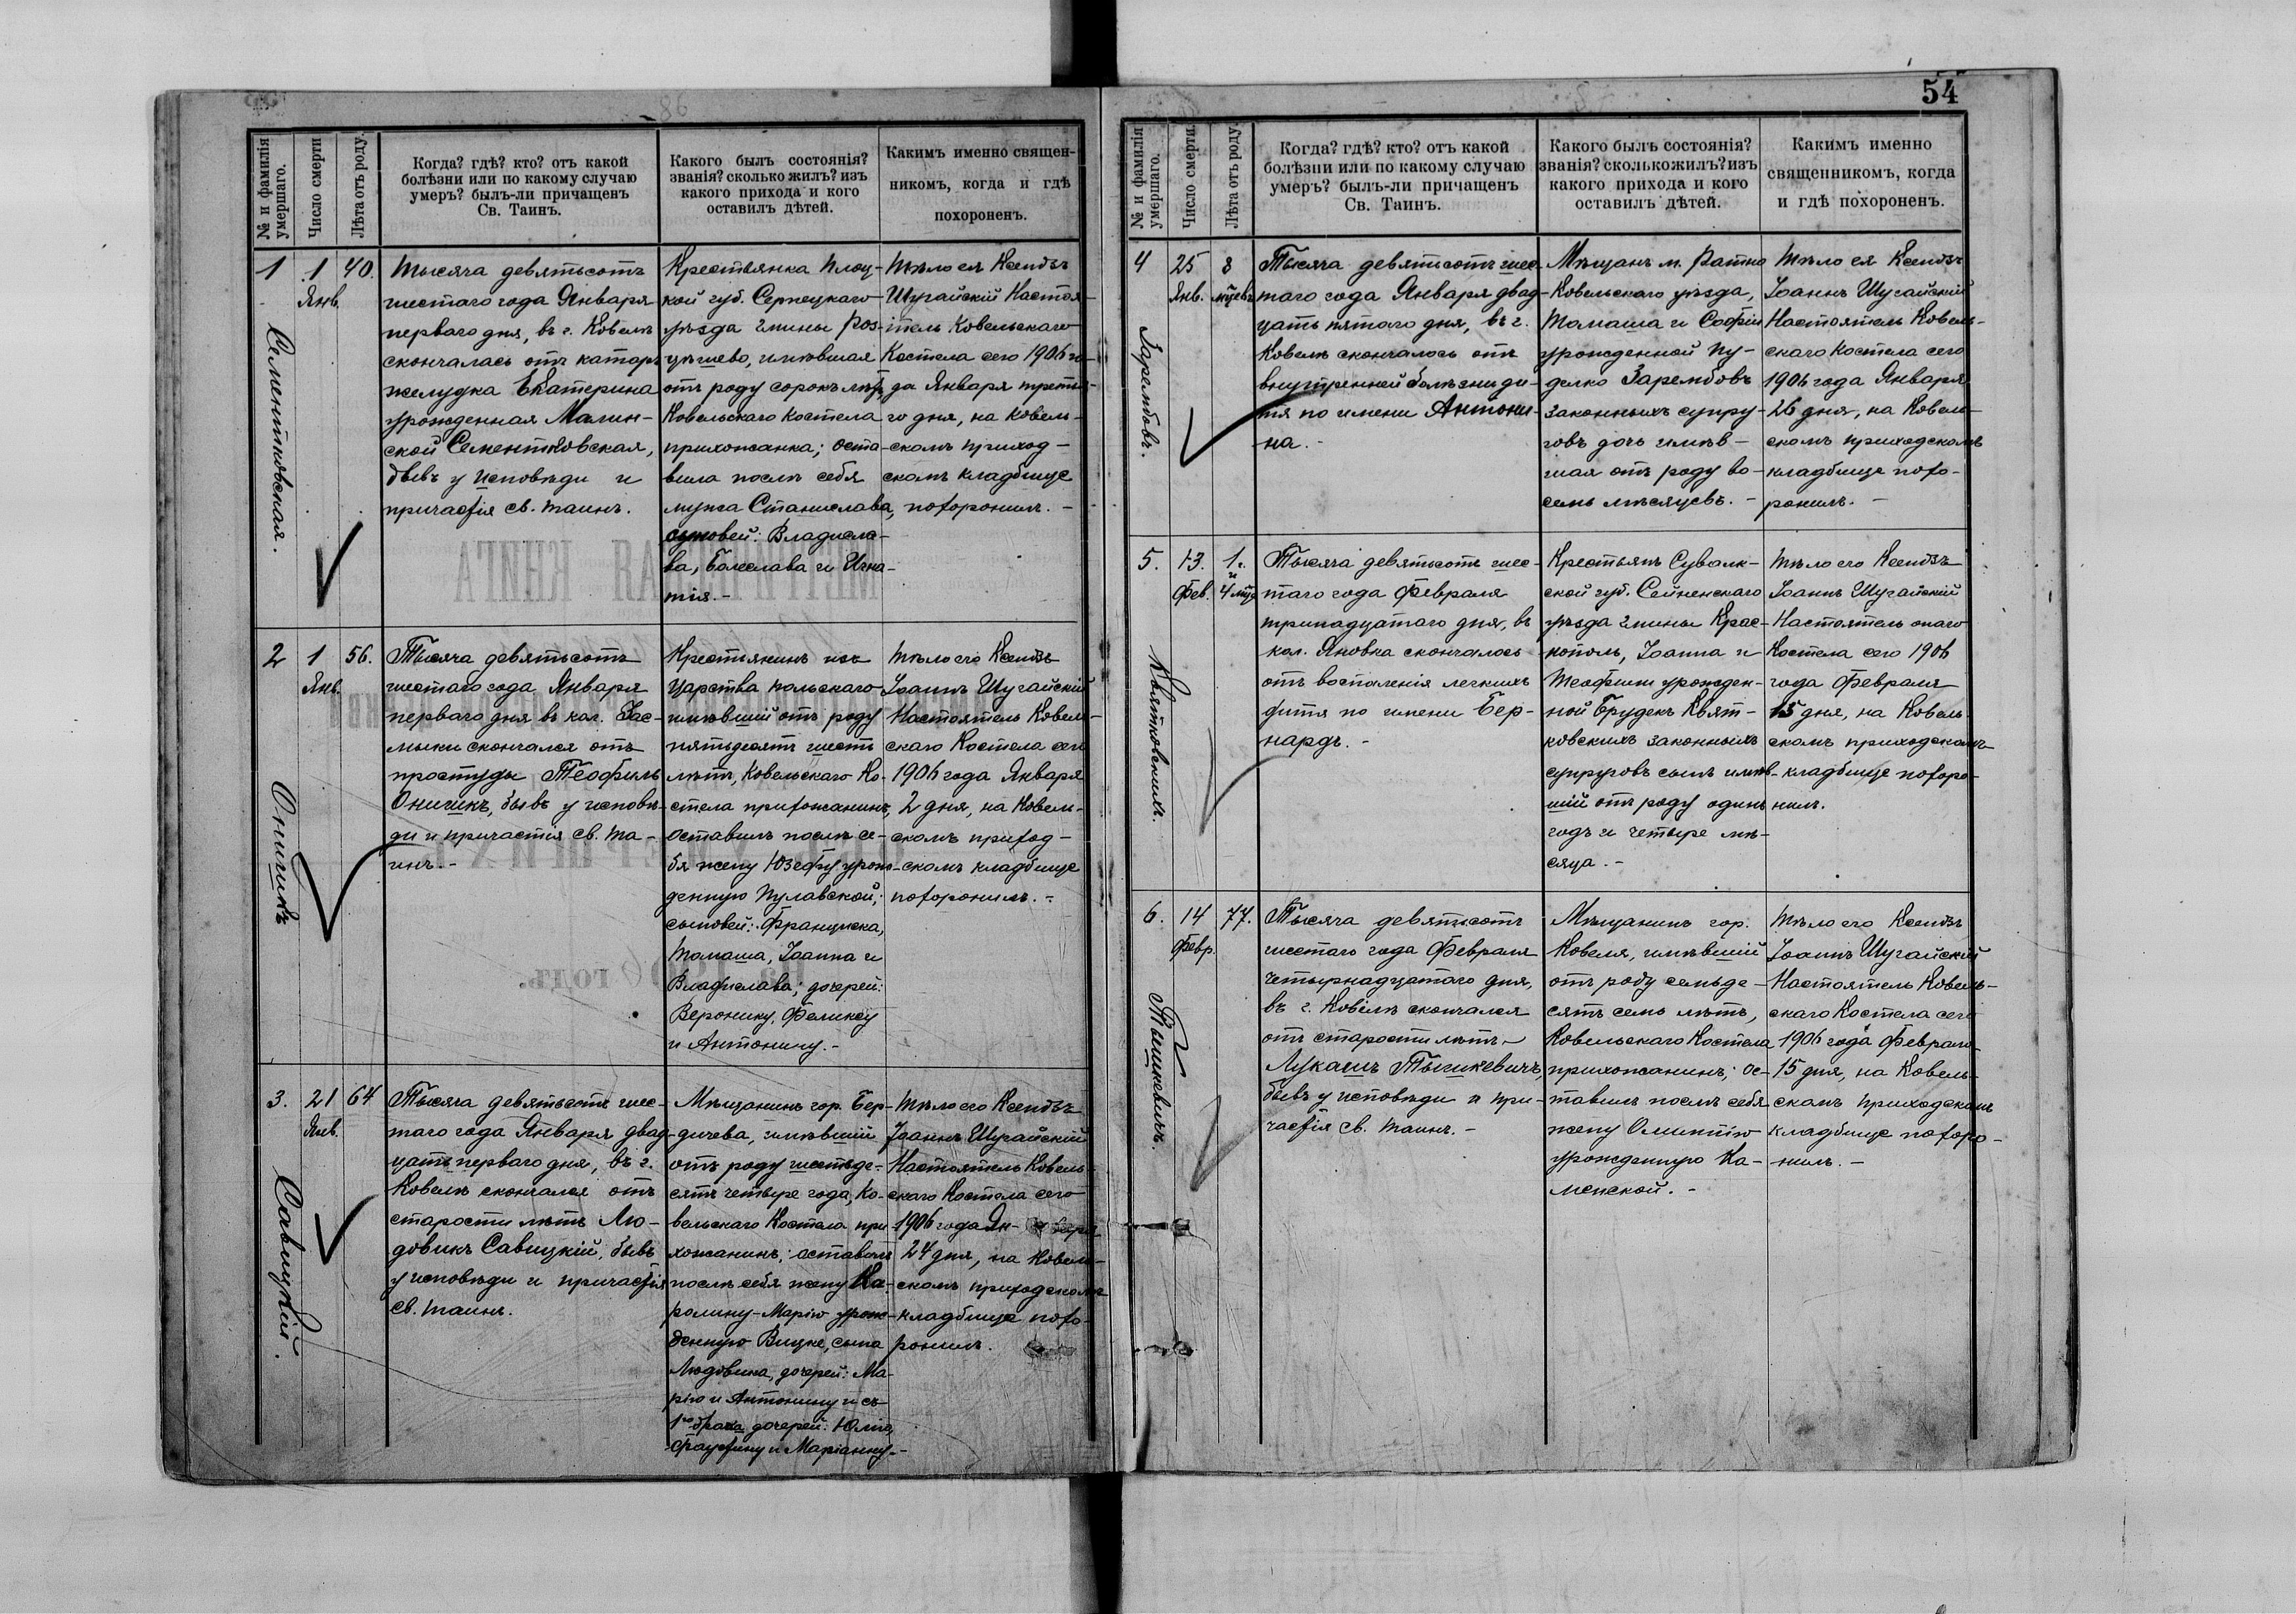 54
№ и фамилія умершаго.
Число смерти
Лѣта отъ роду.
Когда? гдѣ? кто? отъ какой
болѣзни или по какому случаю
умеръ? былъ-ли причащенъ
Св. Таинъ.
Какого былъ состоянія?
званія? сколько жилъ? изъ
какого прихода и кого
оставилъ дѣтей.
Какимъ именно священ-
никомъ, когда и гдѣ
похороненъ.
1
Сементковская.
1
Янв.
40.
Тысяча девятьсотъ
шестаго года Января
перваго дня, въ г. Ковелѣ
скончалась отъ катара
желудка Екатерина
урожденная Малин-
ской Сементковская,
бывъ у исповѣди и
причастія св. таинъ.
Крестьянка Плоц-
кой губ. Серпецкаго
уѣзда гмины Роз-
цѣшево, имѣвшая
отъ роду сорокъ лѣтъ,
Ковельскаго костела
прихожанка; оста-
вила послѣ себя
мужа Станислава,
сыновей: Владисла-
ва, Болеслава и Игна-
тія.-
Тѣло ея Ксендзъ
Шугайскій Настоя-
тель Ковельскаго
Костела сего 1906 го-
да Января третья-
го дня, на Ковель-
скомъ приход-
скомъ кладбище
похоронилъ. -
2
Онишкъ
1
Янв.
56.
Тысяча девятьсотъ
шестаго года Января
перваго дня въ кол. Зас-
мыки скончался отъ
простуды Теофиль
Онишкъ, бывъ у исповѣ-
ди и причастія св. та-
инъ.-
Крестьянинъ изъ
Царства польскаго
имѣвшій отъ роду
пятьдесятъ шесть
лѣтъ, Ковельскаго Ко-
стела прихожанинъ,
оставилъ послѣ се-
бя жену Юзефу урож-
денную Пулавской;
сыновей: Францишка,
Томаша, Іоанна и
Владислава; дочерей:
Веронику, Феликсу
и Антонину.-
Тѣло его Ксендзъ
Іоаннъ Шугайскій
Настоятель Ковель-
скаго Костела сего
1906 года Января
2 дня, на Ковель-
скомъ приход-
скомъ кладбище
похоронилъ. -
3.
Савицкій.
21
Янв.
64
Тысяча девятьсотъ шес-
таго года Января двад-
цать перваго дня, въ г.
Ковелѣ скончался отъ
старости лѣтъ Лю-
довикъ Савицкій, бывъ
у исповѣди и причастія
св. таинъ.
Мѣщанинъ гор. Бер-
дичева, имѣвшій
отъ роду шестьде-
сятъ четыре года, Ко-
вельскаго Костела при-
хожанинъ; оставилъ
послѣ себя жену Ка-
ролину-Марію урож-
денную Вицке, сына
Людовика, дочерей: Ма-
рію и Антонину и съ
1го брака дочерей: Юлію,
Фаустину и Маріанну.-
Тѣло его Ксендзъ
Іоаннъ Шугайскій
Настоятель Ковель-
скаго Костела сего
1906 года Ян- варя
24 дня, на Ковель-
скомъ приходскомъ
кладбище похо-
ронилъ.
№ и фамилія умершаго.
Число смерти.
Лѣта отъ роду.
Когда? гдѣ? кто? отъ какой
болѣзни или по какому случаю
умеръ? былъ-ли причащенъ
Св. Таинъ.
Какого былъ состоянія?
званія? сколько жилъ? изъ
какого прихода и кого
оставилъ дѣтей.
Какимъ именно
священникомъ, когда
и гдѣ похороненъ.
4
Зарембовъ.
25
Янв.
8
Тысяча девятьсотъ шес-
таго года Января двад-
цать пятаго дня, въ г.
Ковелѣ скончалось отъ
внутренней болѣзни ди-
тя по имени Антони-
на.-
Мѣщанъ м. Ратно
Ковельскаго уѣзда,
Томаша и Софіи
урожденной Пу-
делко Зарембовъ
законныхъ супру-
говъ дочь имѣв-
шая отъ роду во-
семь мѣсяцевъ. -
Тѣло ея Ксендзъ
Іоаннъ Шугайскій
Настоятель Ковель-
скаго Костела сего
1906 года Января
26 дня, на Ковель-
скомъ приходскомъ
кладбище похо-
ронилъ. -
5.
Квятковскихъ.
13.
Фев.
1 г.
и
4 мѣс.
Тысяча девятьсотъ шес-
таго года Февраля
тринадцатаго дня, въ
кол. Яновка скончалось
отъ воспаленія легкихъ
дитя по имени Бер-
нардъ. -
Крестьянъ Сувалк-
ской губ. Сейненскаго
уѣзда гмины Крас-
нополь, Іоанна и
Теофили урожден-
ной Брудекъ Квят-
ковскихъ законныхъ
супруговъ сынъ имѣв-
шій отъ роду одинъ
годъ и четыре мѣ-
сяца.-
Тѣло его Ксендзъ
Іоаннъ Шугайскій
Настоятель онаго
Костела сего 1906
года Февраля
15 дня, на Ковель-
скомъ приходскомъ
кладбище похоро-
нилъ.
6.
Тышкевичъ.
14
Февр.
77.
Тысяча девятьсотъ
шестаго года Февраля
четырнадцатаго дня,
въ г. Ковелѣ скончался
отъ старости лѣтъ
Лукашъ Тышкевичъ,
бывъ у исповѣди и при-
частія св. таинъ. -
Мѣщанинъ гор.
Ковеля, имѣвшій
отъ роду семьде-
сятъ семь лѣтъ,
Ковельскаго Костела
прихожанинъ; ос-
тавилъ послѣ себя
жену Олимпію
урожденную Ка-
менской. -
Тѣло его Ксендзъ
Іоаннъ Шугайскій
Настоятель Ковель-
скаго Костела сего
1906 года Февраля
15 дня, на Ковель-
скомъ приходскомъ
кладбище похоро-
нилъ. -